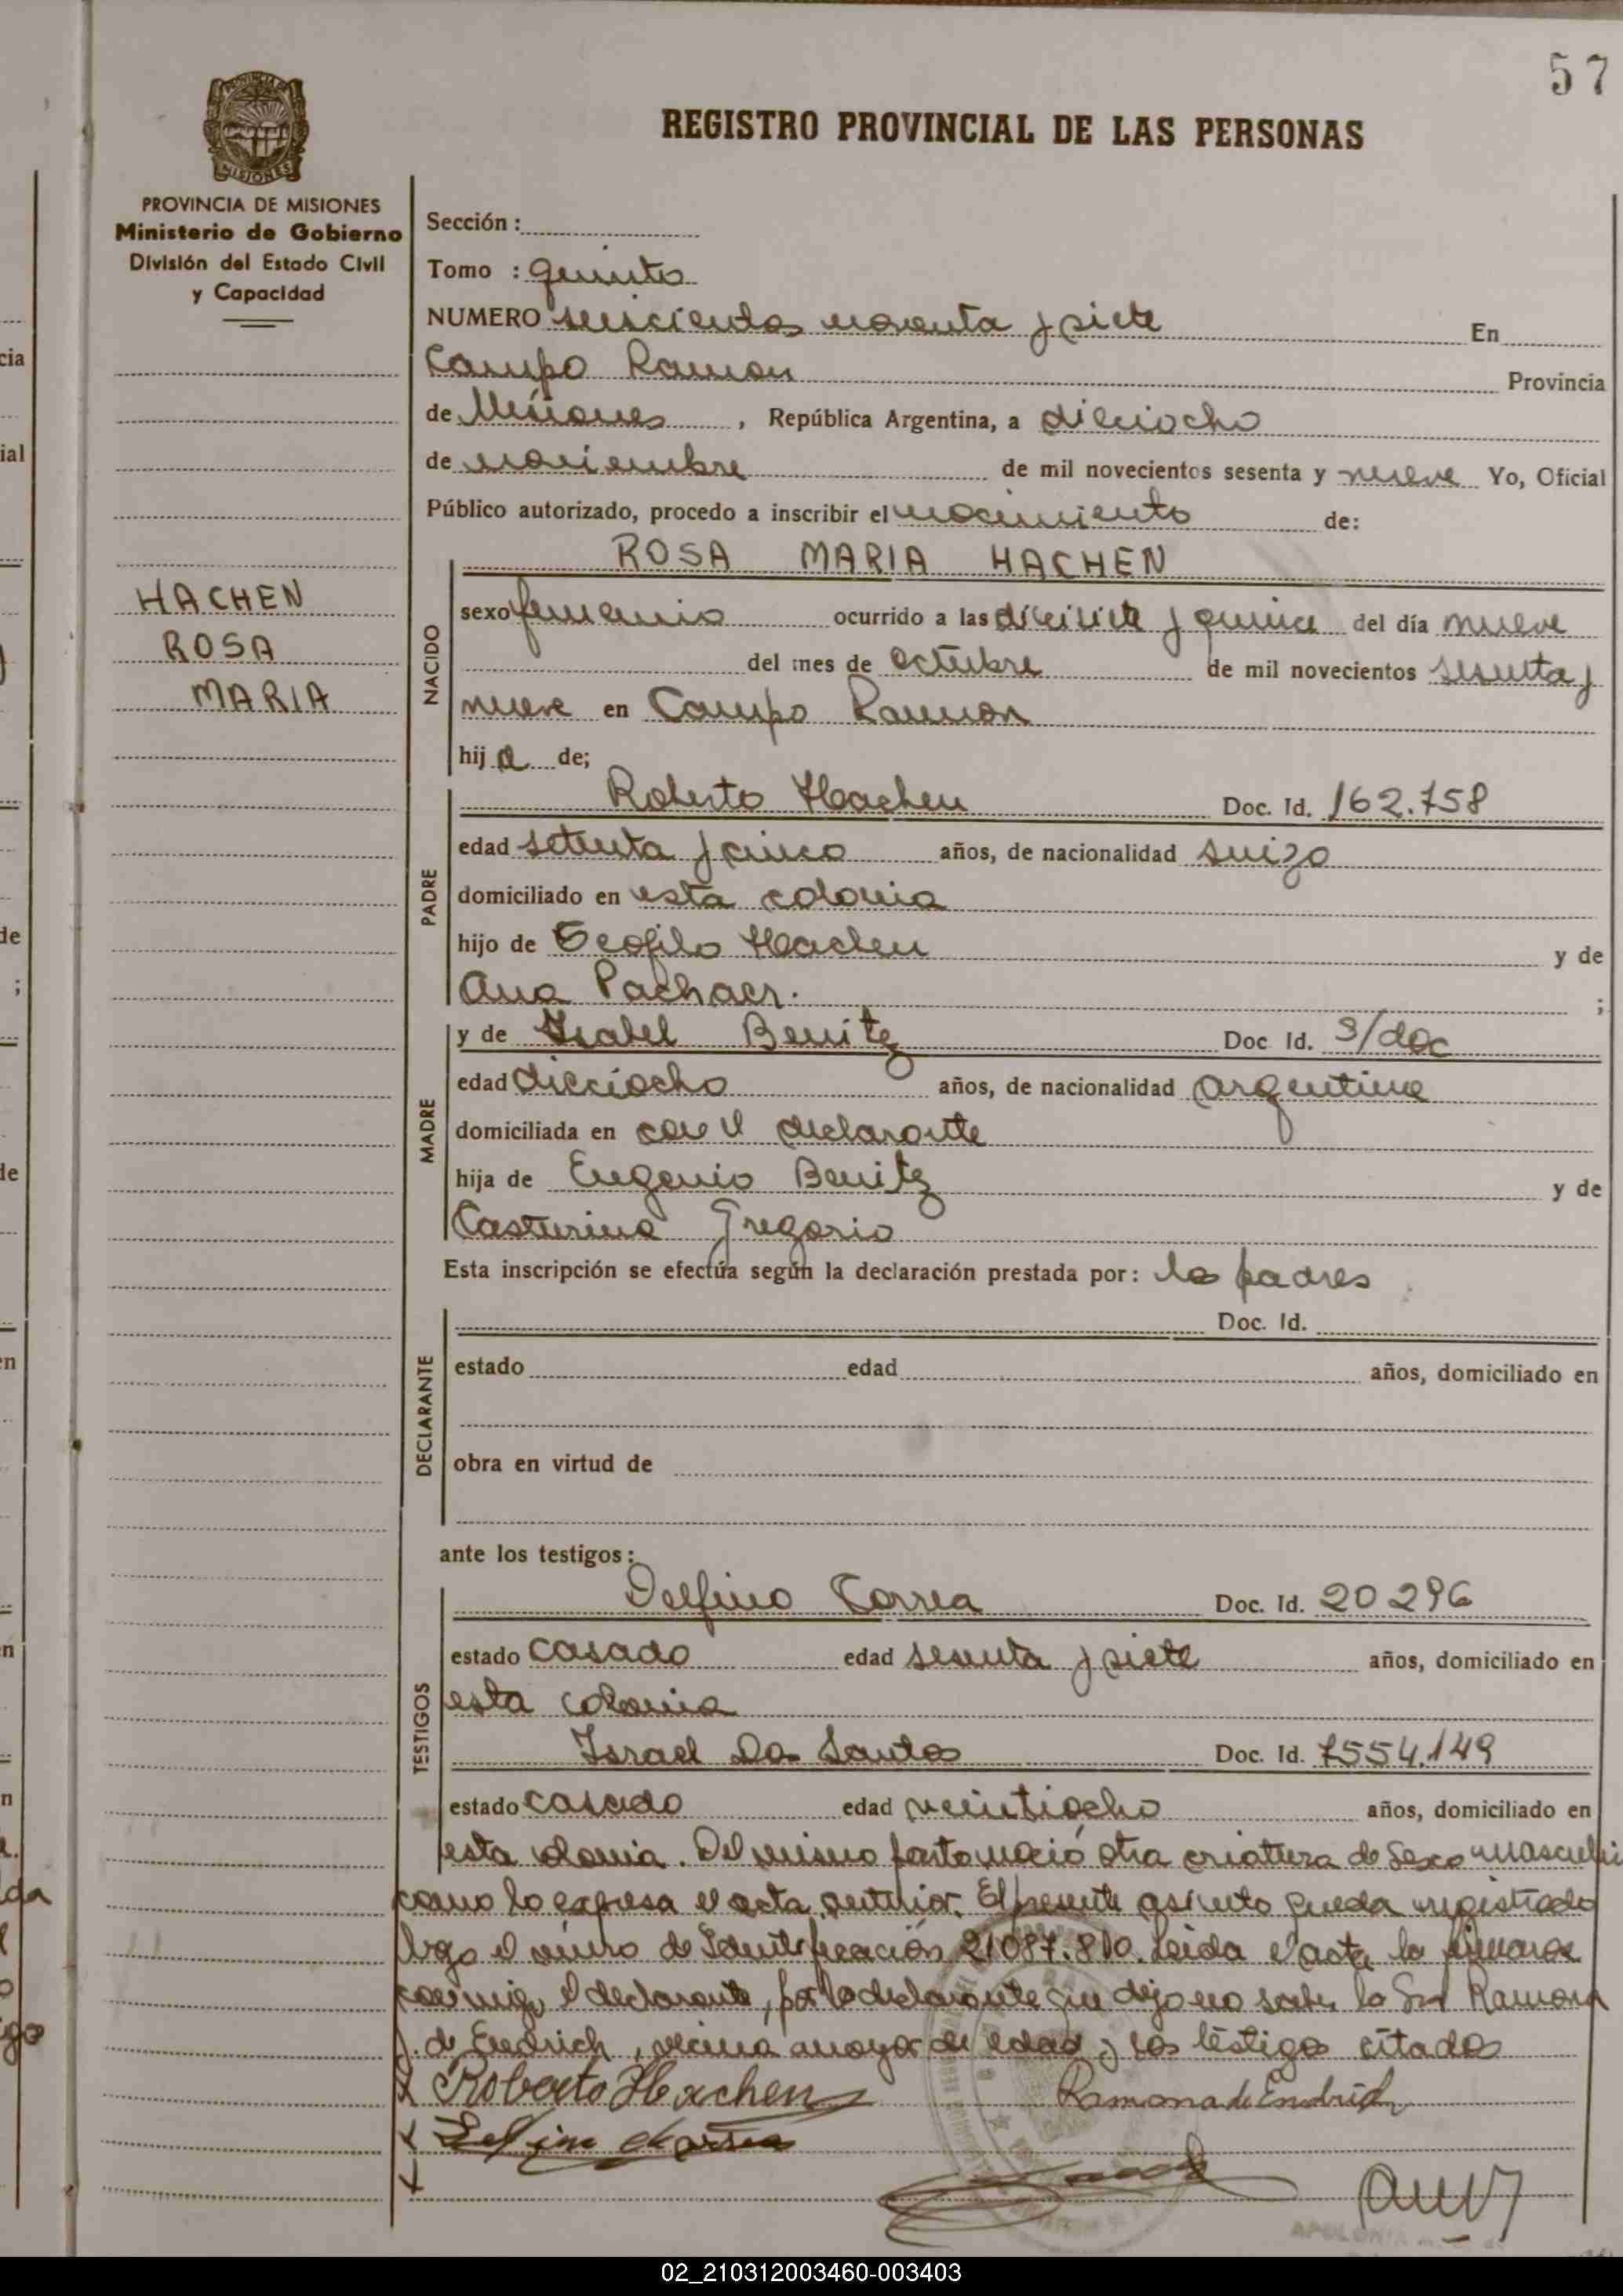 57
REGISTRO PROVINCIAL DE LAS PERSONAS
MISIONES
PROVINCIA DE MISIONES
Ministerio de Gobierno
División del Estado Civil
y Capacidad
HACHEN
ROSA
MARIA
Sección :
Tomo : quinto
NUMERO seiscientos noventa y siete En
Campo Ramon Provincia
de Misiones , República Argentina, a dieciocho
de noviembre de mil novecientos sesenta y nueve Yo, Oficial
Público autorizado, procedo a inscribir el nacimiento de:
ROSA MARIA HACHEN
NACIDO
sexo femenino ocurrido a las diecisiete y quince del día nueve
del mes de octubre de mil novecientos sesenta y
nueve en Campo Ramon
hij a de;
PADRE
Roberto Hachen Doc. Id. 162.758
edad setenta y cinco años, de nacionalidad suizo
domiciliado en esta colonia
hijo de Teofilo Hachen y de
Ana Pachaer. ;
MADRE
y de Isabel Benitez Doc Id. s/doc
edad dieciocho años, de nacionalidad argentina
domiciliada en con el declarante
hija de Eugenio Benitez y de
Casturina Gregorio
Esta inscripción se efectúa según la declaración prestada por: los padres
DECLARANTE
Doc. Id.
estado edad años, domiciliado en
obra en virtud de
ante los testigos:
TESTIGOS
Delfino Correa Doc. Id. 20296
estado casado edad sesenta y siete años, domiciliado en
esta colonia
Israel Dos Santos Doc. Id. 7554.149
estado casado edad veintiocho años, domiciliado en
esta colonia. Del mismo parto nació otra criatura de sexo masculino
como lo expresa el acta anterior. El presente asiento queda registrado
bajo el número de Identificación 21087.810. Leida el acta la firmaron
conmigo el declarante, por la declarante que dijo no saber la Sra Ramona
J. de Endrich, vecina mayor de edad y los testigos citados
Roberto Hachen Ramona de Endrich
Delfino Correa
02_210312003460-003403